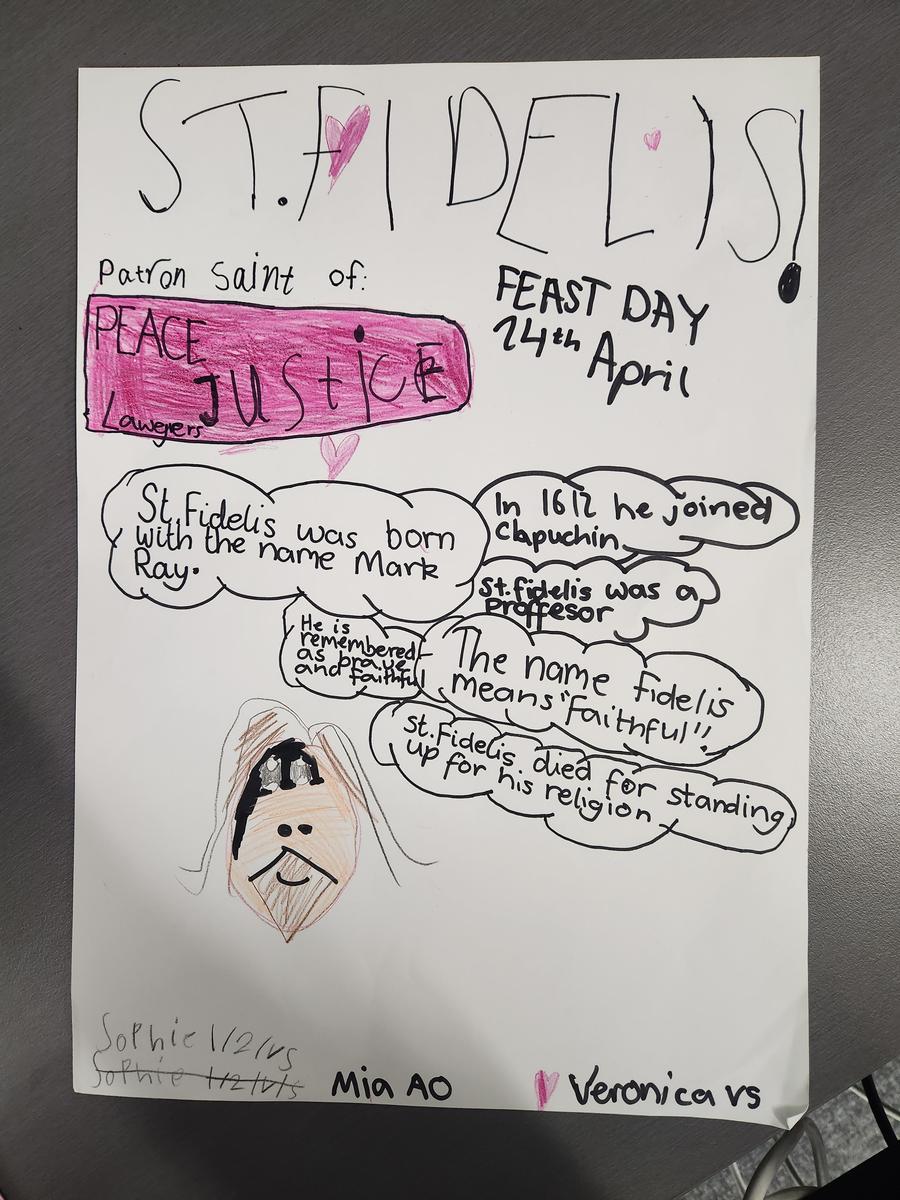 ST. FIDELIS!
Patron Saint of:
PEACE
JUStiCE
Lawyers
FEAST DAY
24th
April
St. Fidelis was born
with the name Mark
Ray.
In 1612 he joined
Clapuchin
St. fidelis was a
proffesor
He is
remembered
as brave
and faithful
The name Fidelis
means "Faithful"!
St. Fidelis died for standing
up for his religion
Sophie 1/2/vs
Sophie 1/2/v/s
Mia AO
Veronica vs